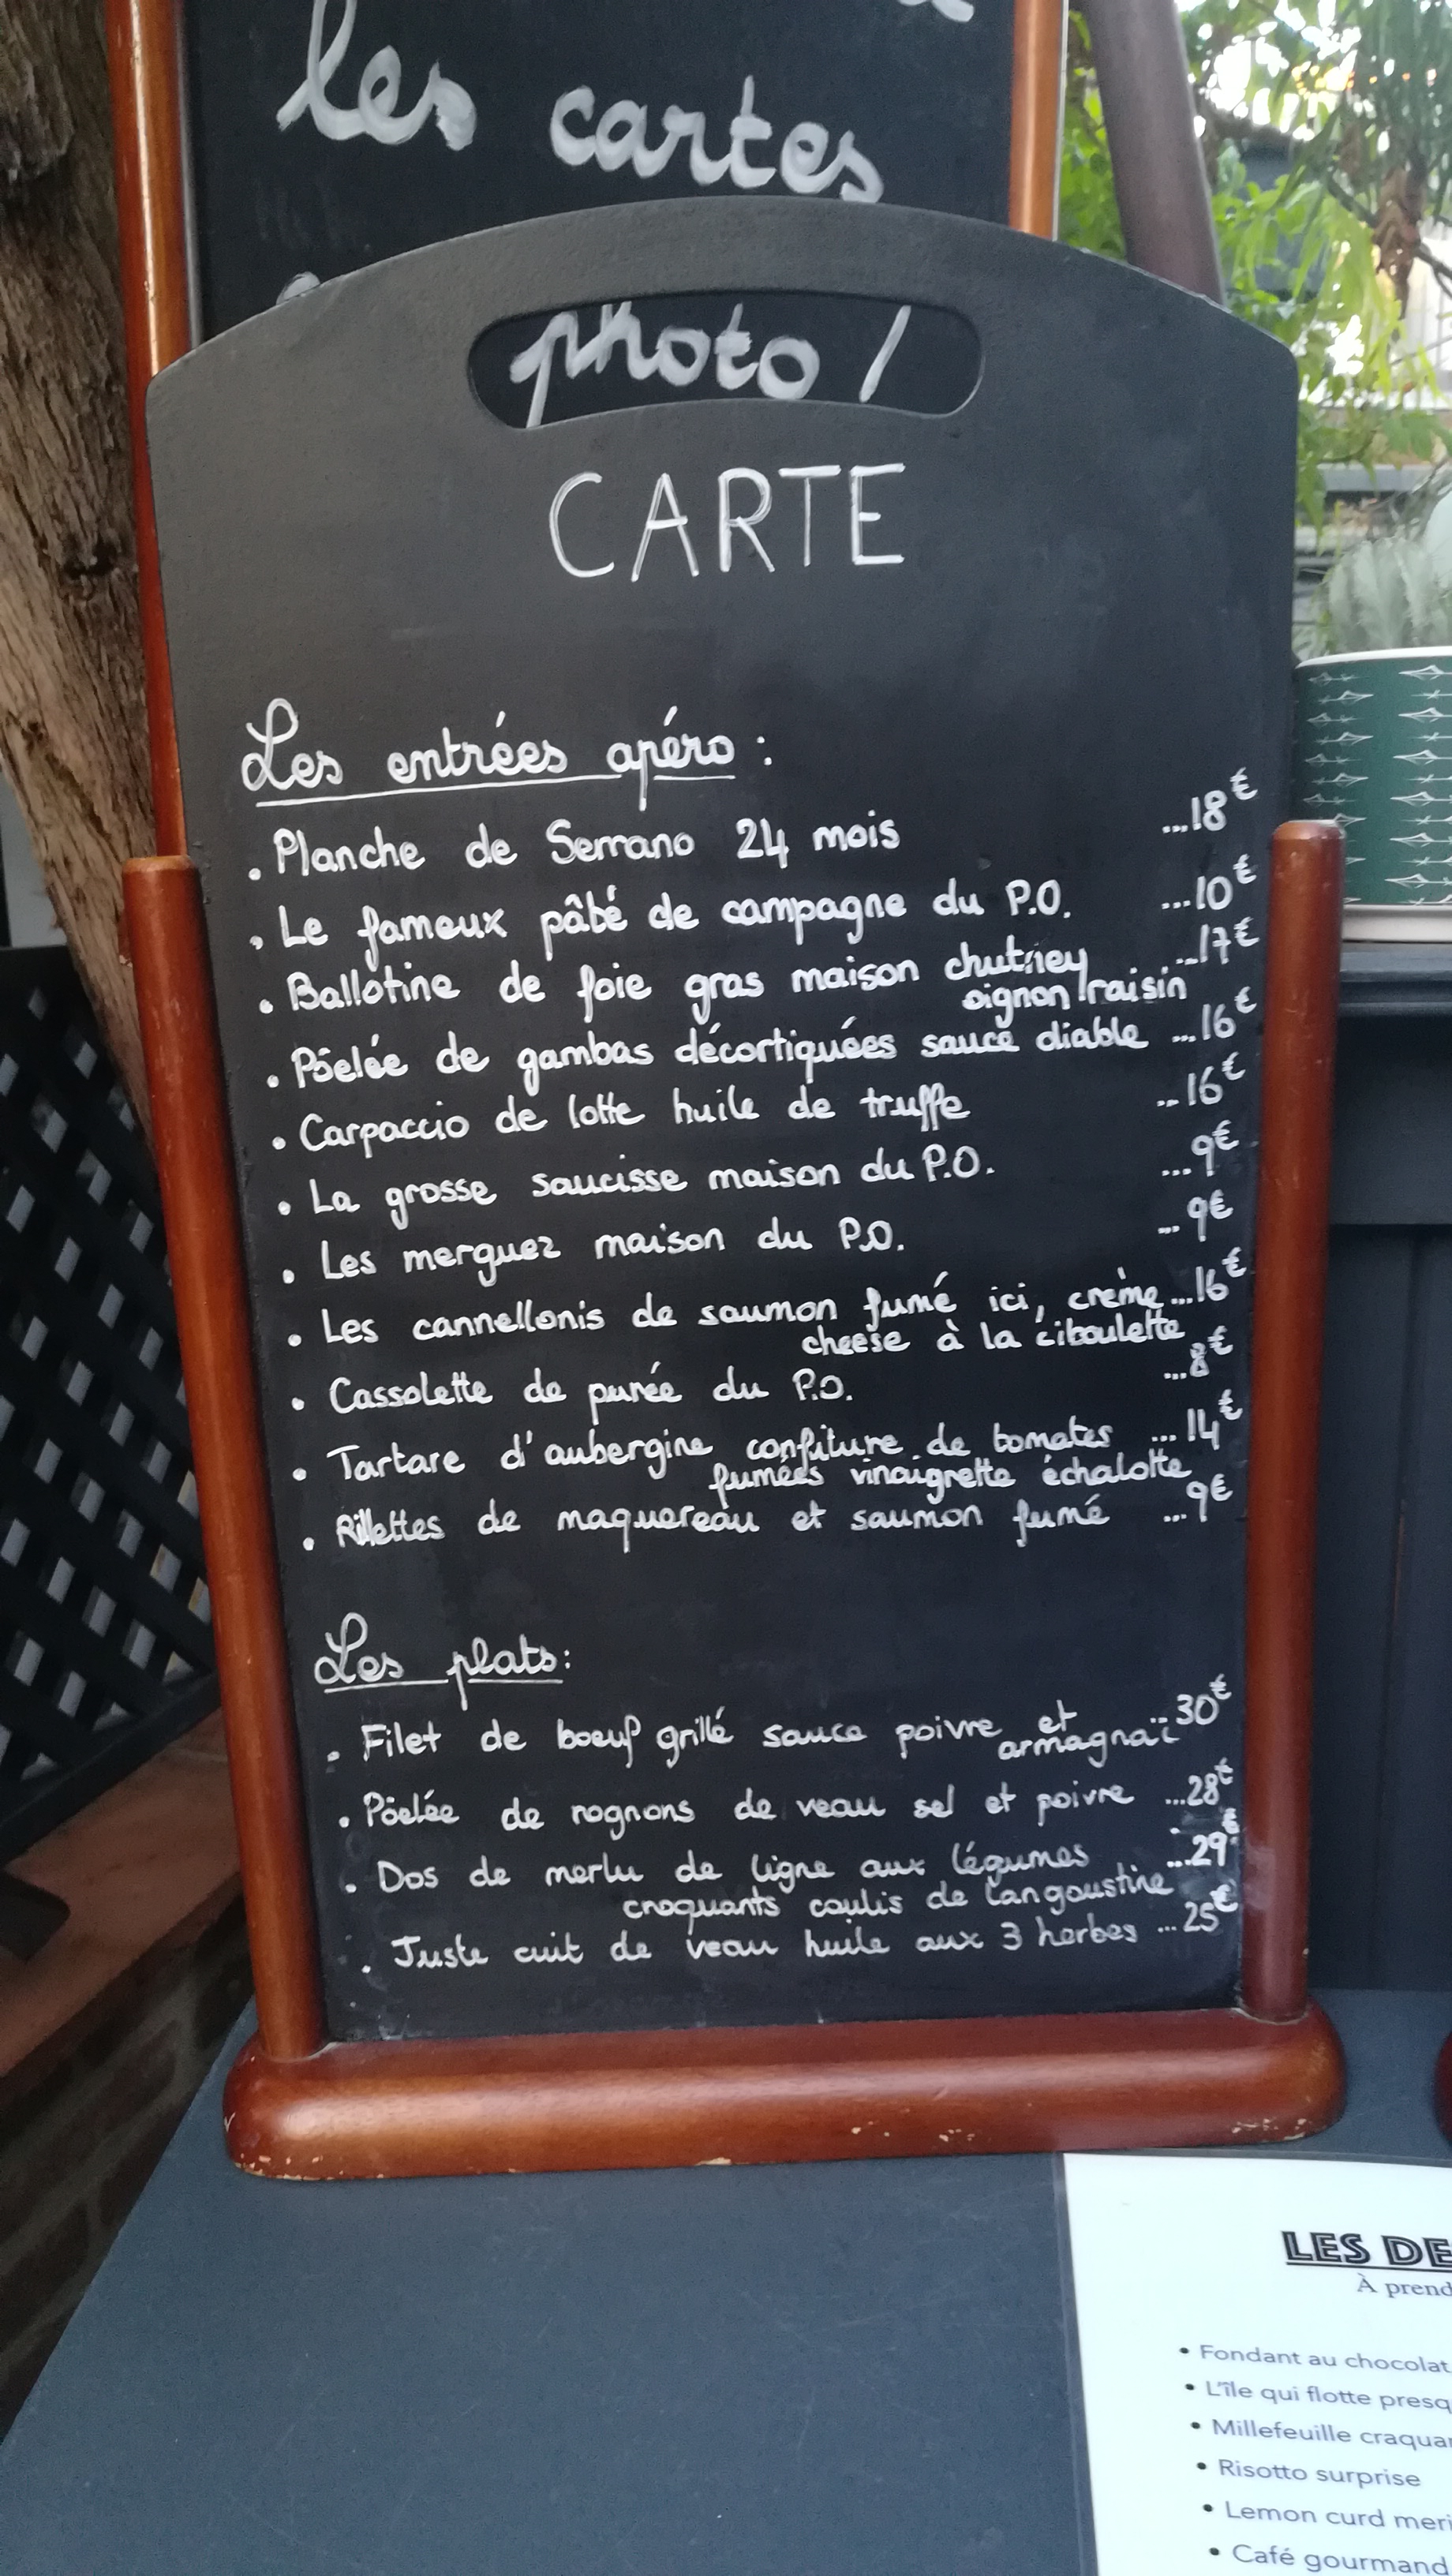 les cartes
photo !
CARTE
Les entrées apéro :
. Planche de Serrano 24 mois ...18€
. Le fameux pâté de campagne du P.O. ...10€
. Ballotine de foie gras maison chutney ...17€
oignon raisin
. Pôelée de gambas décortiquées sauce diable ...16€
. Carpaccio de lotte huile de truffe ...16€
. La grosse saucisse maison du P.O. ...9€
. Les merguez maison du P.O. ...9€
. Les cannellonis de saumon fumé ici, crème ...16€
cheese à la ciboulette
. Cassolette de purée du P.O. ...8€
. Tartare d'aubergine confiture de tomates ...14€
fumées vinaigrette échalotte
. Rillettes de maquereau et saumon fumé ...9€
Les plats :
. Filet de boeuf grillé sauce poivre et ...30€
armagnac
. Pôelée de rognons de veau sel et poivre ...28€
. Dos de merlu de ligne aux légumes ...29€
croquants coulis de langoustine
. Juste cuit de veau huile aux 3 herbes ...25€
LES DE
À prend
• Fondant au chocolat
• L'île qui flotte presq
• Millefeuille craquan
• Risotto surprise
• Lemon curd meri
• Café gourmand